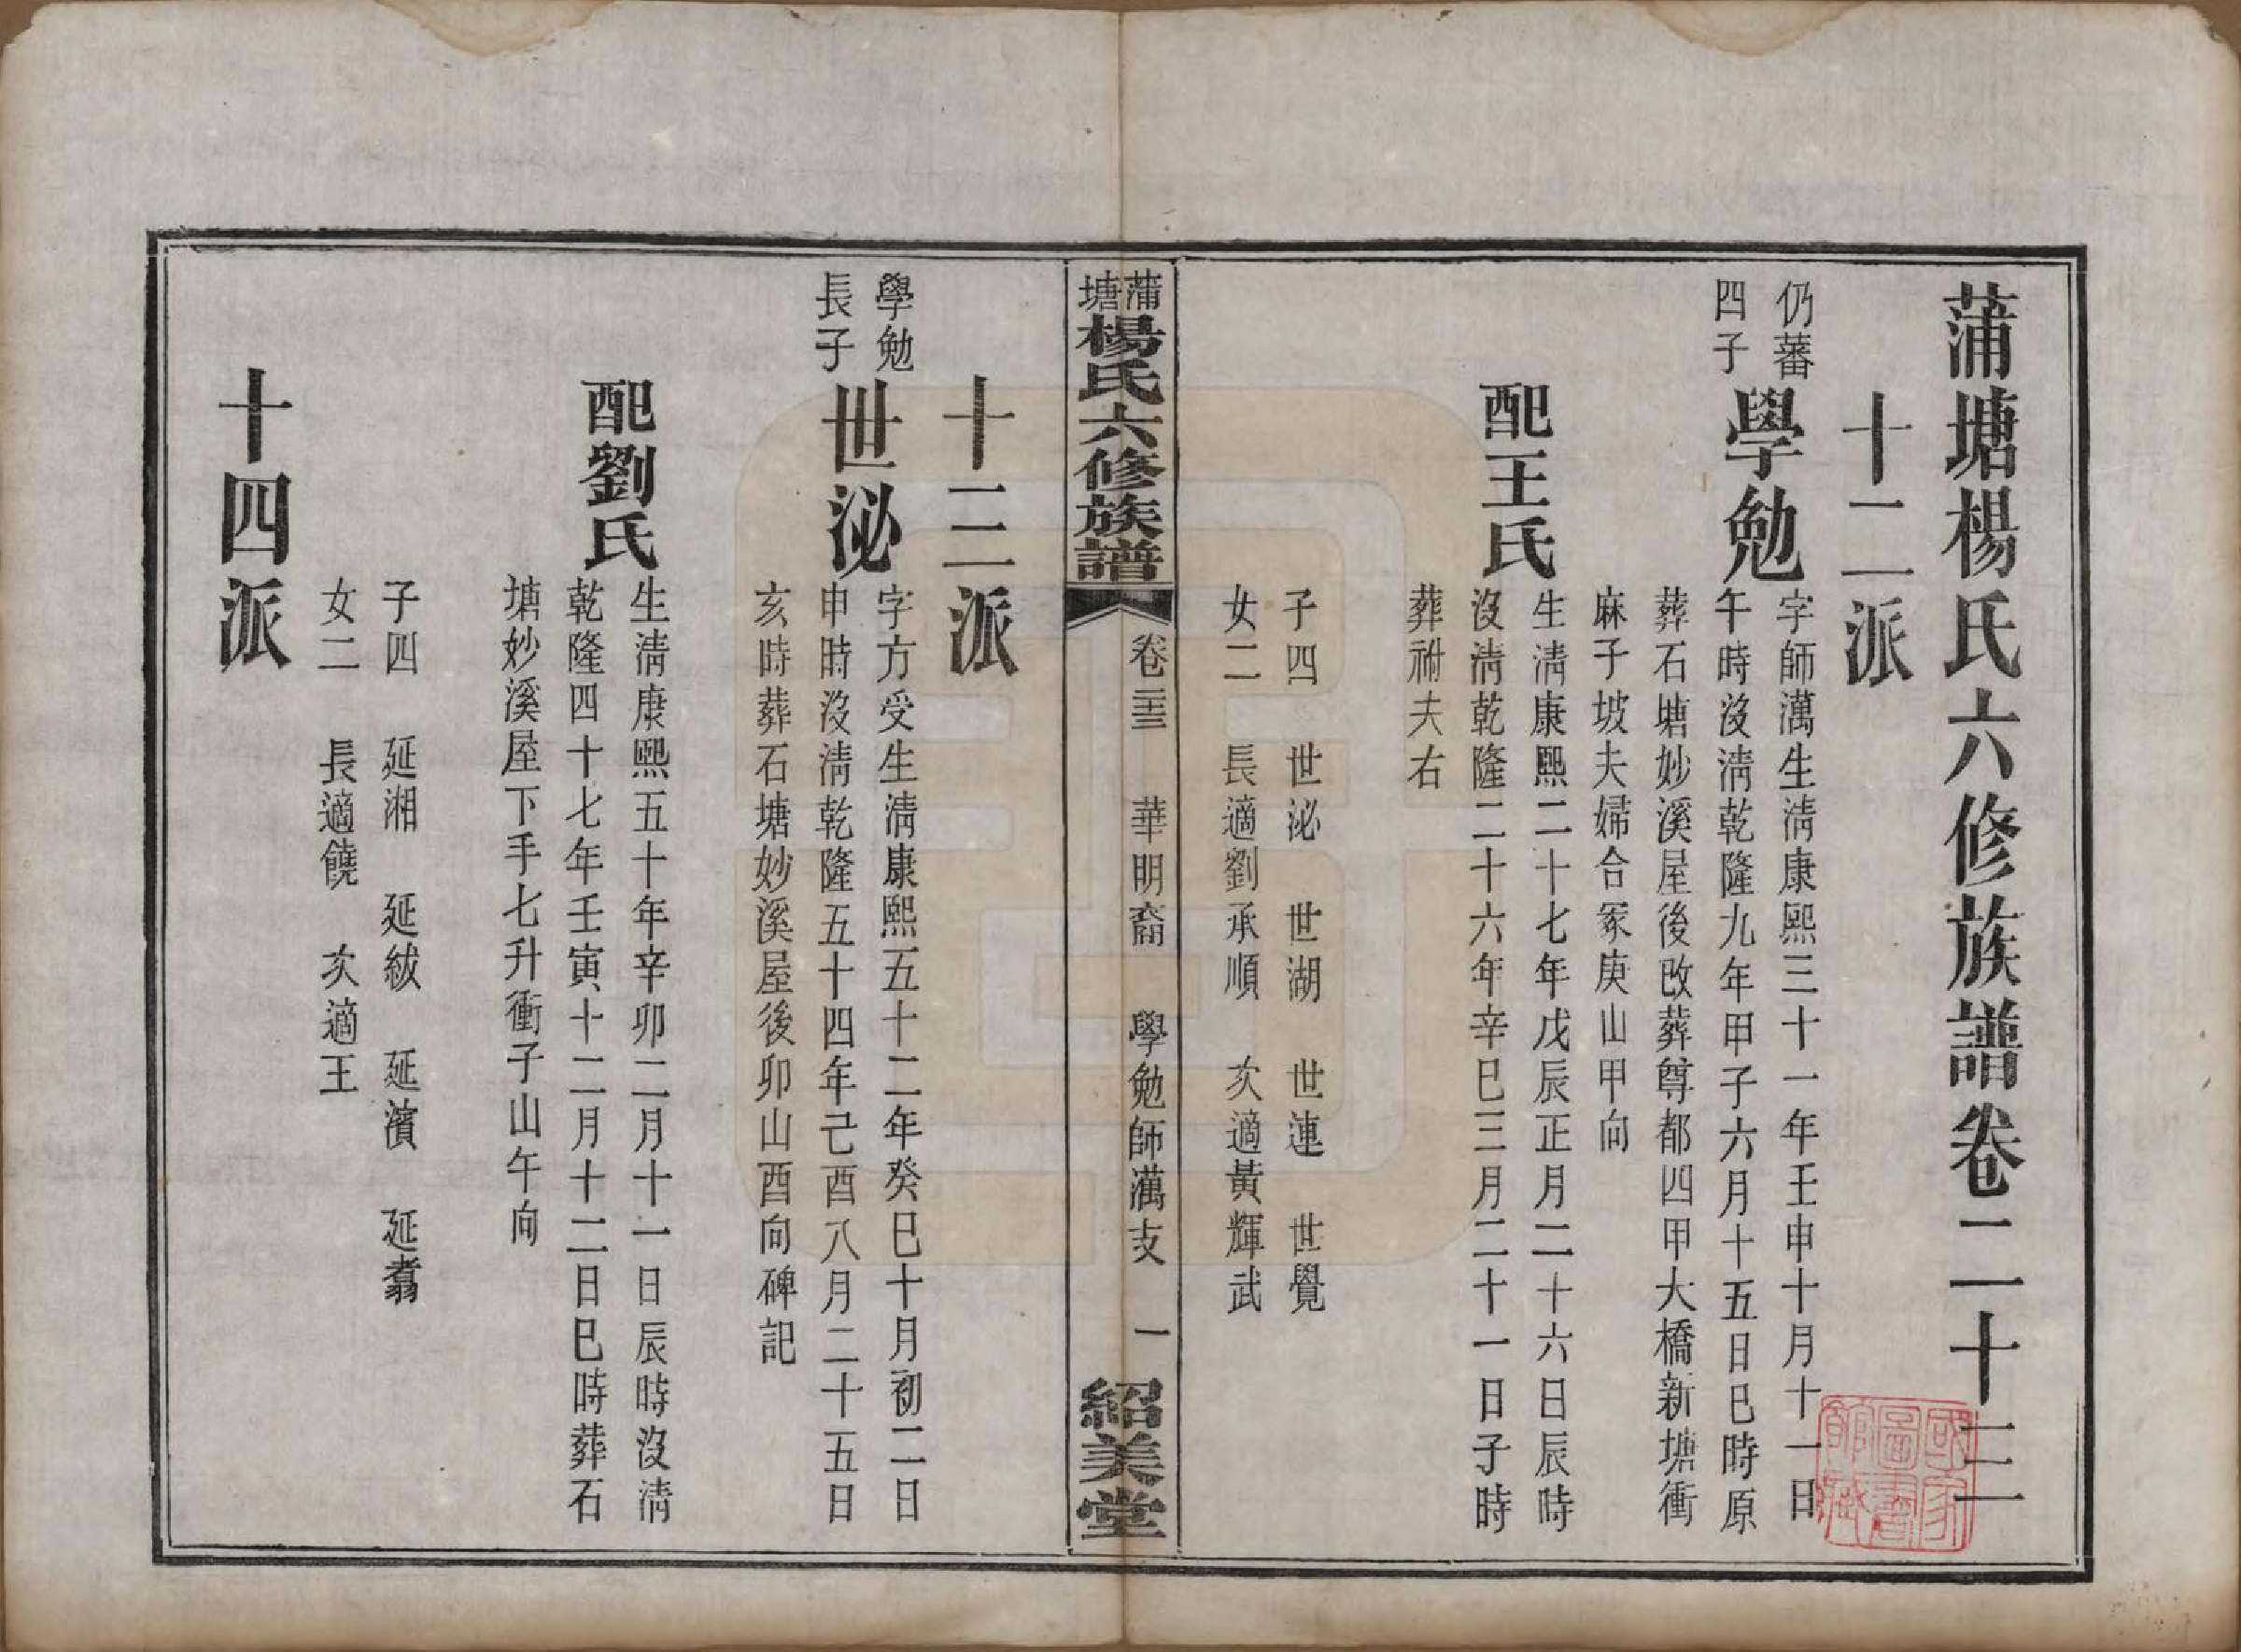 蒲塘楊氏六修族譜卷二十三
十二派
仍蕃
四子
學勉
字師澫生清康熙三十一年壬申十月十一日
午時沒清乾隆九年甲子六月十五日巳時原
葬石塘妙溪屋後改葬尊都四甲大橋新塘衝
麻子坡夫婦合冢庚山甲向
配王氏
生清康熙二十七年戊辰正月二十六日辰時
沒清乾隆二十六年辛巳三月二十一日子時
葬祔夫右
子四 世泌 世湖 世連 世覺
女二 長適劉承順 次適黃輝武
蒲塘楊氏六修族譜 卷二十三 華明裔 學勉師澫支 一 紹美堂
十三派
學勉
長子
世泌
字方受生清康熙五十二年癸巳十月初二日
申時沒清乾隆五十四年己酉八月二十五日
亥時葬石塘妙溪屋後卯山酉向碑記
配劉氏
生清康熙五十年辛卯二月十一日辰時沒清
乾隆四十七年壬寅十二月十二日巳時葬石
塘妙溪屋下手七升衝子山午向
子四 延湘 延紱 延濱 延翥
女二 長適饒 次適王
十四派
國家圖書館藏